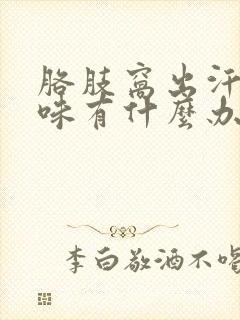 胳肢窩出汗
味有什麼办
李白敬酒不喝